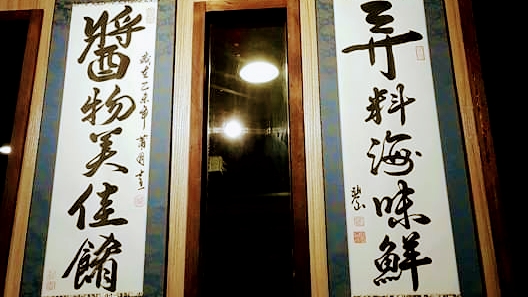 弄料海味鮮
醬物美佳餚
歲在乙未年